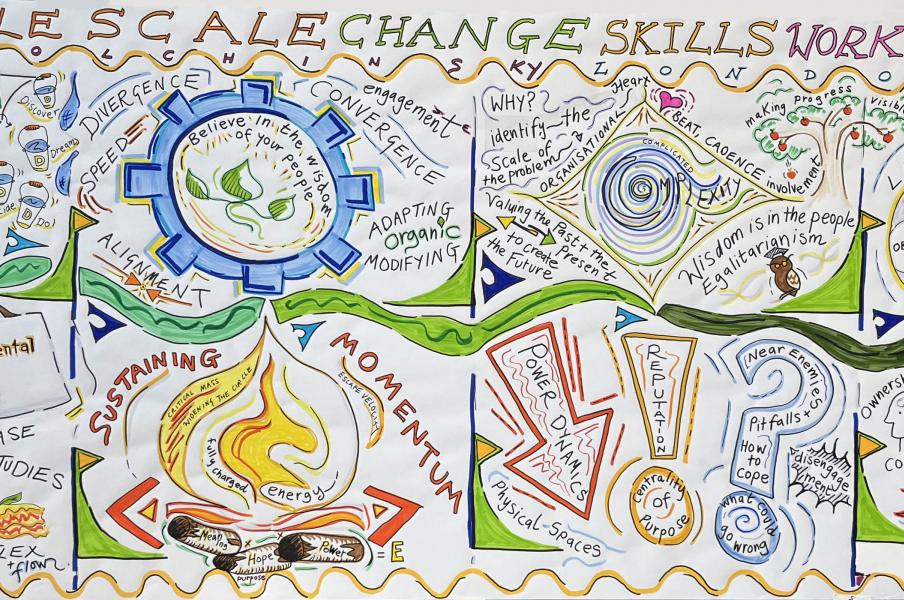 LE SCALE CHANGE SKILLS WORK
O L C H I N S KY L O N D O
Discover
Dream
D
D
cide
Do!
DIVERGENCE
SPEED
ALIGNMENT
Believe in the wisdom
of your people
CONVERGENCE
engagement
ADAPTING
organic
MODIFYING
WHY?
identify the
scale of
the problem
ORGANISATIONAL
Heart
BEAT, CADENCE
involvement
COMPLICATED
COMPLEXITY
making progress
visible
Valuing the Past + the
Present
to create
the Future
Wisdom is in the people
Egalitarianism
ental
ASE
TUDIES
LEX
+ flow
SUSTAINING
MOMENTUM
CRITICAL MASS
WIDENING THE CIRCLE
ESCAPE VELOCITY
fully charged
energy
Meaning
x
Hope
x
Power
= E
purpose
POWER DYNAMICS
Physical Spaces
REPUTATION
Centrality
of
Purpose
Near Enemies
Pitfalls +
How
to
Cope
disengage
ment
what could
go wrong
Ownership
CO